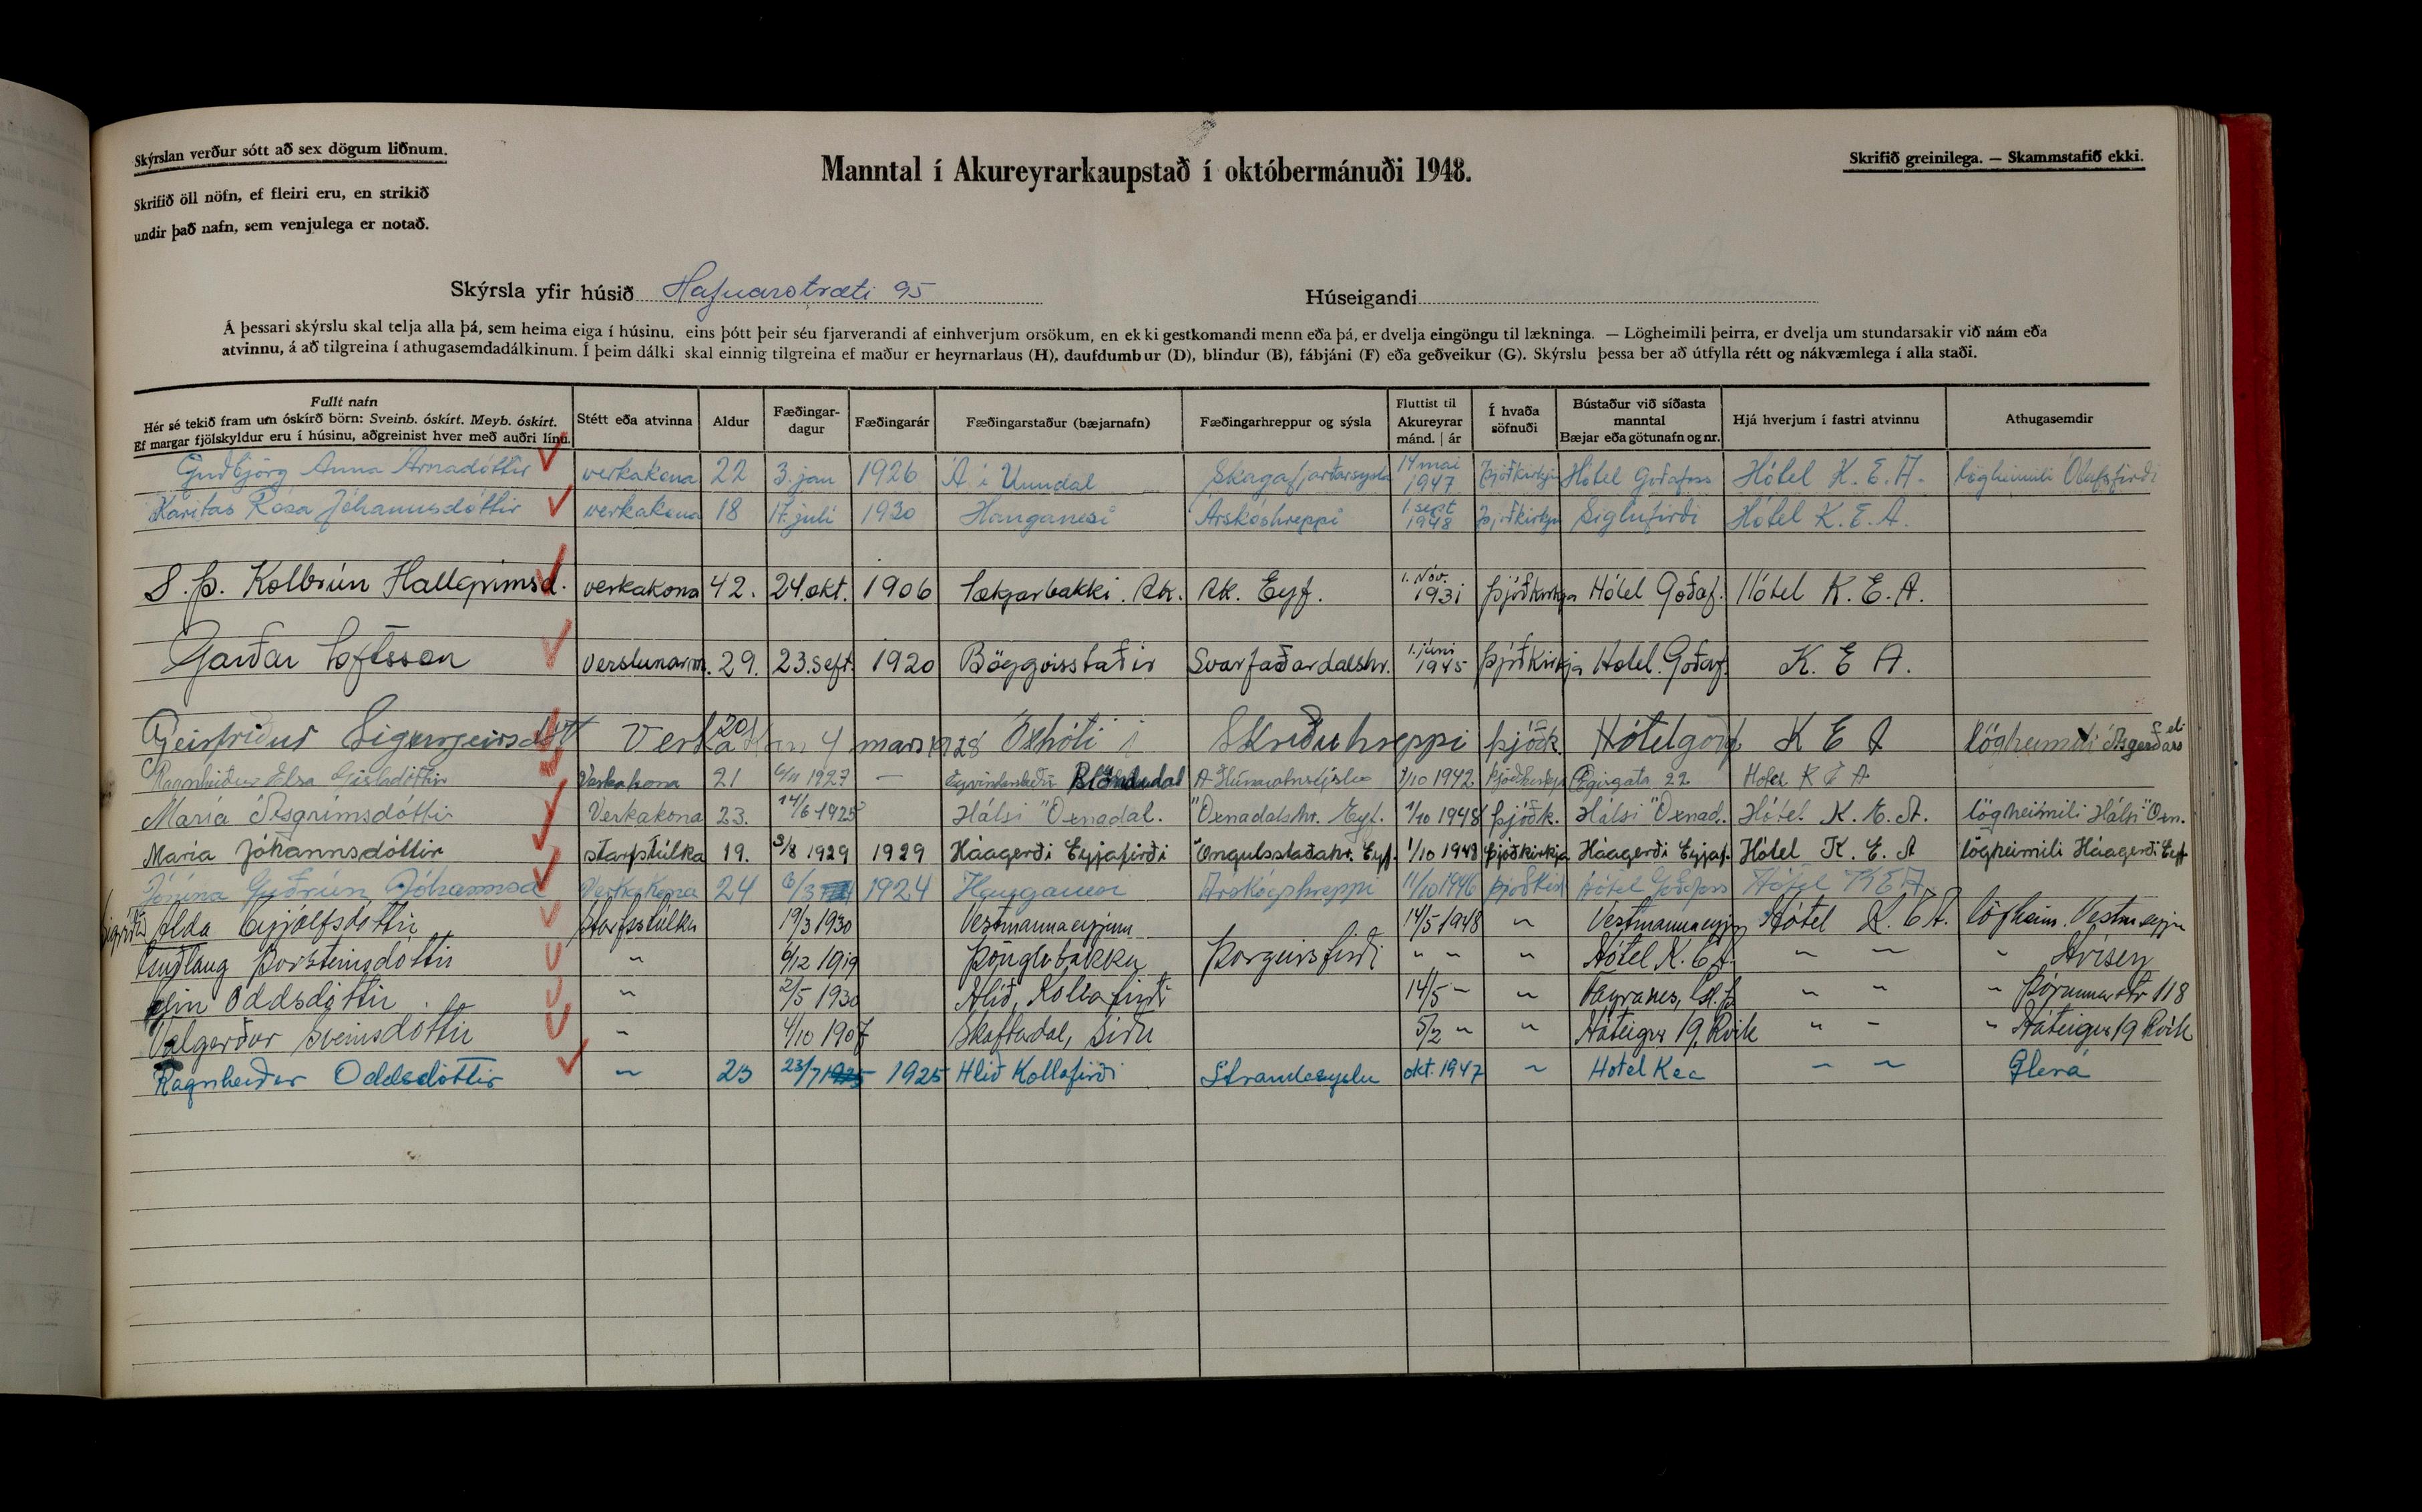 Skýrslan verður sótt að sex dögum liðnum.
Skrifið öll nöfn, ef fleiri eru, en strikið
undir það nafn, sem venjulega er notað.
Manntal í Akureyrarkaupstað í októbermánuði 1948.
Skrifið greinilega. — Skammstafið ekki.
Skýrsla yfir húsið Hafnarstræti 95 Húseigandi
Á þessari skýrslu skal telja alla þá, sem heima eiga í húsinu, eins þótt þeir séu fjarverandi af einhverjum orsökum, en ekki gestkomandi menn eða þá, er dvelja eingöngu til lækninga. — Lögheimili þeirra, er dvelja um stundarsakir við nám eða
atvinnu, á að tilgreina í athugasemdadálkinum. Í þeim dálki skal einnig tilgreina ef maður er heyrnarlaus (H), daufdumbur (D), blindur (B), fábjáni (F) eða geðveikur (G). Skýrslu þessa ber að útfylla rétt og nákvæmlega í alla staði.
Fullt nafn
Hér sé tekið fram um óskírð börn: Sveinb. óskírt. Meyb. óskírt.
Ef margar fjölskyldur eru í húsinu, aðgreinist hver með auðri línu.
Stétt eða atvinna
Aldur
Fæðingar-
dagur
Fæðingarár
Fæðingarstaður (bæjarnafn)
Fæðingarhreppur og sýsla
Fluttist til
Akureyrar
mánd. | ár
Í hvaða
söfnuði
Bústaður við síðasta
manntal
Bæjar eða götunafn og nr.
Hjá hverjum í fastri atvinnu
Athugasemdir
Guðbjörg Anna Árnadóttir verkakona 22 3. jan 1926 Á í Unndal Skagafjarðarsýsla 14 mai 1947 Þjóðkirkju Hótel Goðafoss Hótel K. E. A. lögheimili Ólafsfirði
Karitas Rósa Jóhannsdóttir verkakona 18 17. juli 1930 Hauganesi Árskóshreppi 1. sept 1948 Þjóðkirkju Siglufirði Hótel K. E. A.
S. Þ. Kolbrún Hallgrímsd. verkakona 42. 24. okt. 1906 Lækjarbakki. Ák. Ak. Eyf. 1. Nóv. 1931 Þjóðkirkja Hótel Goðaf. Hótel K. E. A.
Garðar Loftsson verslunarm. 29. 23. sept. 1920 Böggvisstaðir Svarfaðardalshr. 1. júní 1945 Þjóðkirkja Hotel. Goðaf. K. E A.
Geirfriður Sigurgeirsdótt Verkakona 20 4 mars 1928 Öxhóli í Skriðuhreppi þjóðk. Hótelgoðf K E A lögheimili Ásgerðars
Ragnheiður Elsa Gísladóttir Verkakona 21 6/11 1927 — Blöndudal A-Húnavatnssýslu 1/10 1942 Þjóðkirkja Ægisgata 22 Hotel K E A
María Ásgrímsdóttir Verkakona 23. 14/6 1925 Hálsi Öxnadal. Öxnadalshr. Eyf. 1/10 1948 þjóðk. Hálsi Öxnad. Hótel K. E. A. lögheimili Hálsi Öxn.
María Jóhannsdóttir starfstúlka 19. 3/8 1929 1929 Háagerði Eyjafirði Öngulsstaðahr. Eyf. 1/10 1948 Þjóðkirkja Háagerði Eyjaf. Hótel K. E. A lögheimili Háagerði Eyf
Jónína Guðrún Jóhannsd Verkakona 24 6/3 1924 Hauganesi Árskógshreppi 11/10 1946 Þjóðkirk Hótel Goðafoss Hótel KEA
Sigríður Alda Eyjólfsdóttir Starfsstúlka 19/3 1930 Vestmannaeyjum 14/5 1948 „ Vestmannaeyjum Hótel K. E A. lögheim. Vestm eyjum
Guðlaug Þorsteinsdóttir „ 6/12 1919 Þönglabakka Þorgeirsfirði „ „ „ Hótel K. E A. „ „ „ Hrísey
Elín Oddsdóttir „ 2/5 1930 Hlíð, Kollafirði 14/5 „ „ Fagranes, „ „ „ Þórunnarstr 118
Valgerður Sveinsdóttir „ 4/10 1907 Skaftadal, Síðu 5/2 „ „ Háteigur 19, Rvik „ „ „ Háteigur 19 Rvik
Ragnheiður Oddsdóttir „ 23 23/7 1925 Hlíð Kollafirði Strandasýslu okt. 1947 „ Hotel Kea „ „ Glerá